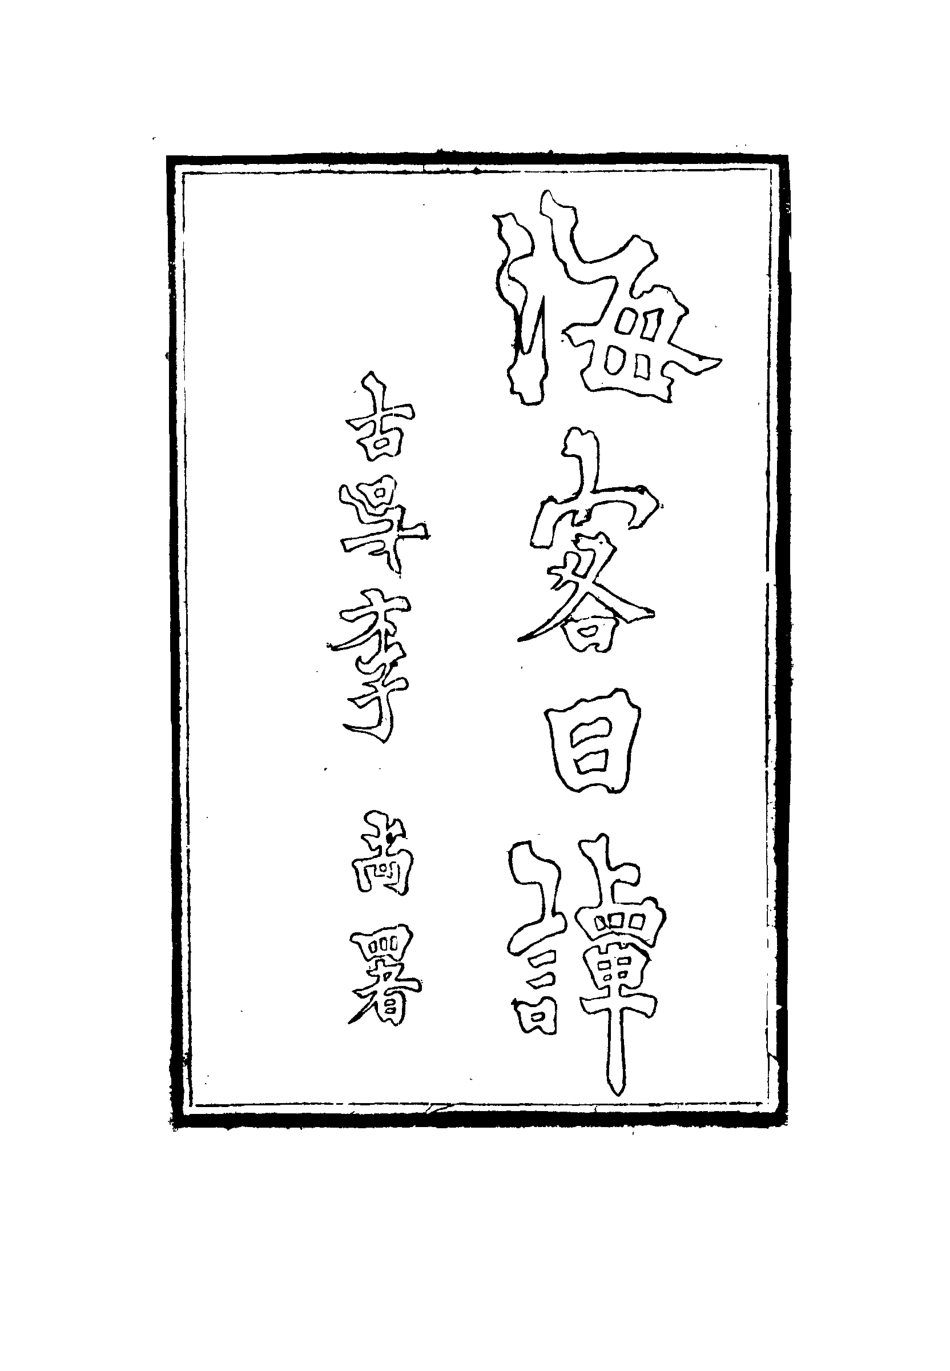 海客日譚
古果李尚署